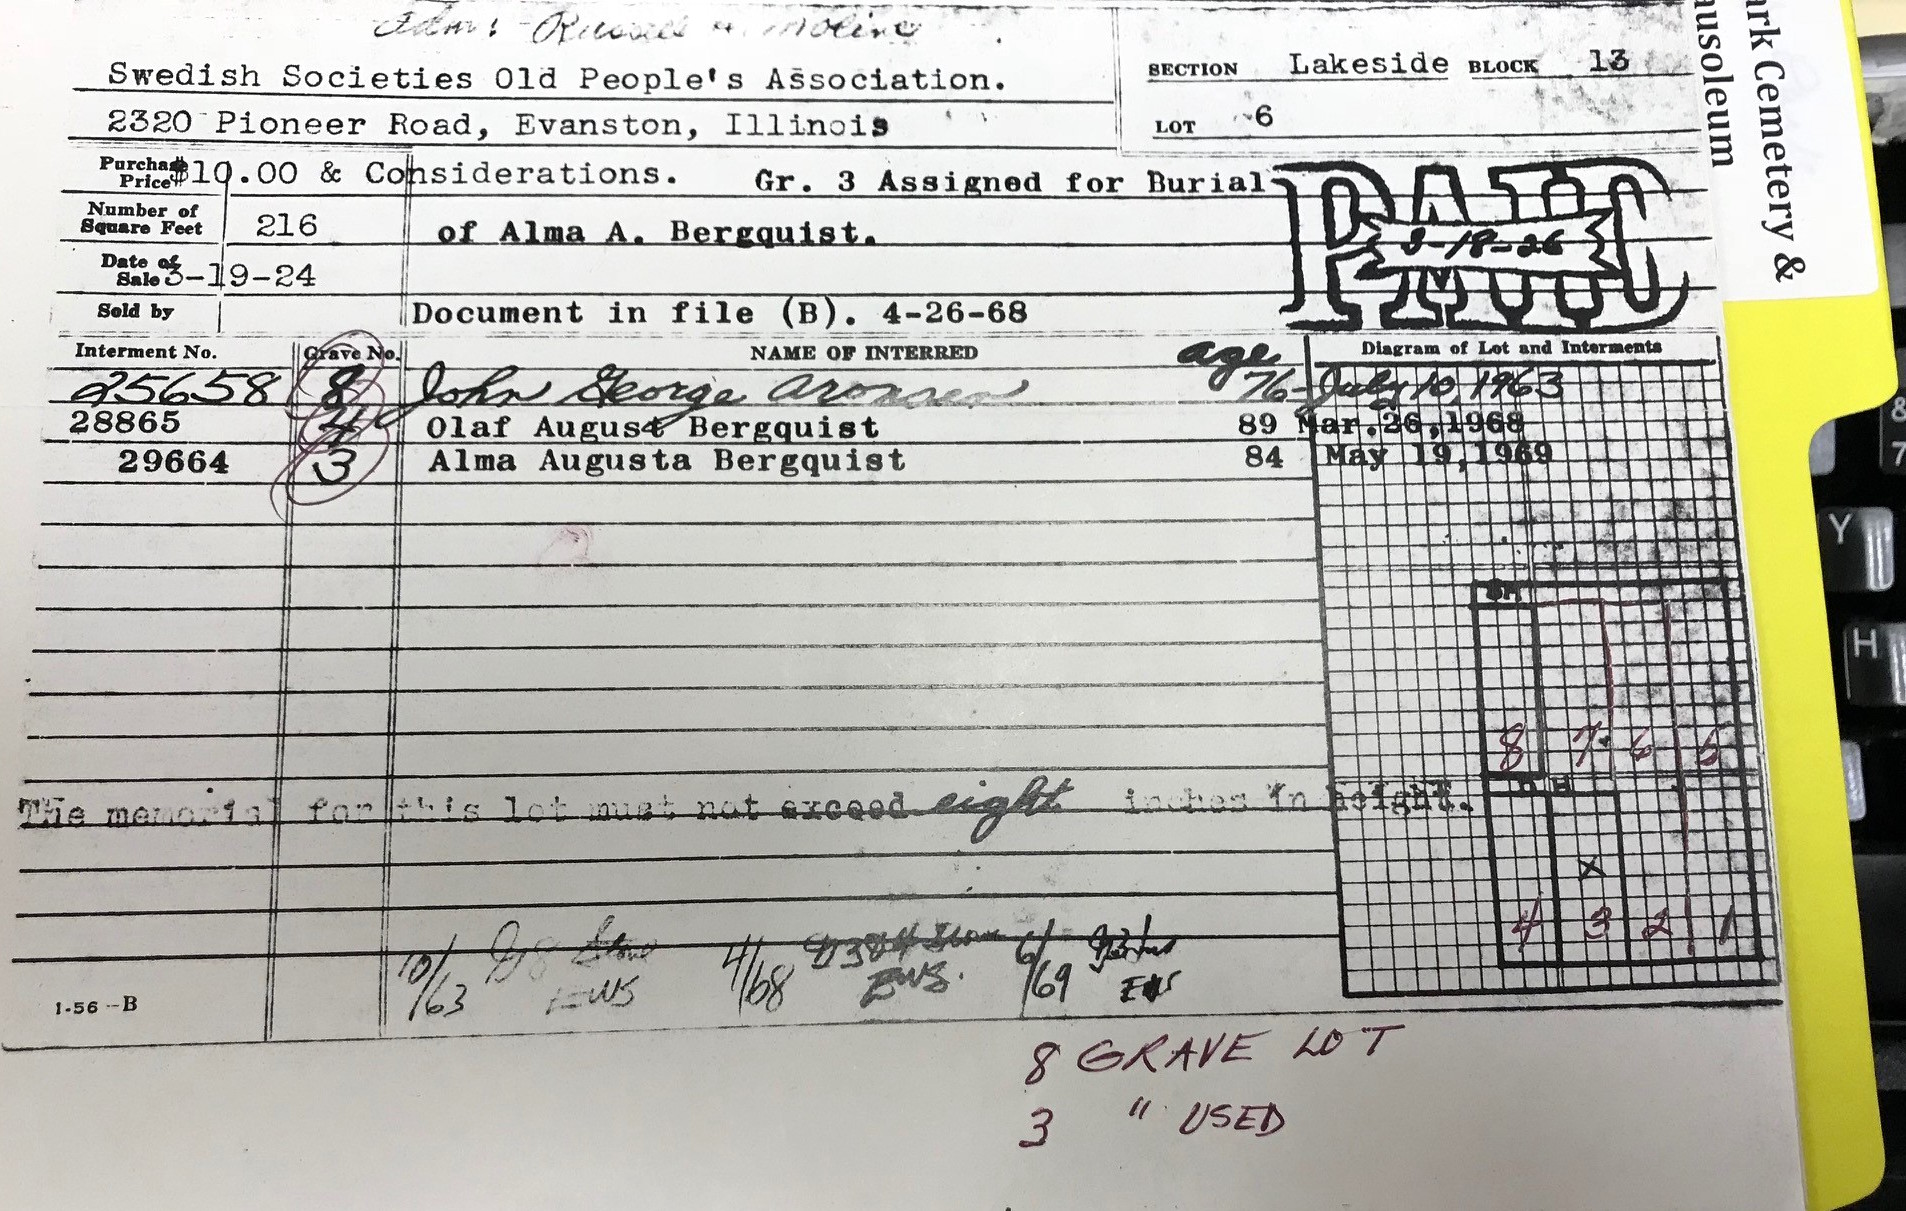 Adm: Russell A. Moline
Swedish Societies Old People's Association.
2320 Pioneer Road, Evanston, Illinois
SECTION Lakeside BLOCK 13
LOT 6
Purchase Price $10.00 & Considerations. Gr. 3 Assigned for Burial
Number of Square Feet 216 of Alma A. Bergquist.
PAID
3-18-26
Date of Sale 3-19-24
Sold by Document in file (B). 4-26-68
Interment No. Grave No. NAME OF INTERRED age Diagram of Lot and Interments
25658 8 John George Aronsen 76 - July 10, 1963
28865 4 Olaf August Bergquist 89 Mar.26,1968
29664 3 Alma Augusta Bergquist 84 May 19,1969
8 7 6 5
The memorial for this lot must not exceed eight inches in height.
X
4 3 2 1
10/63 4/68 6/69
EWS EWS. EWS
1-56-B
8 GRAVE LOT
3 " USED
ark Cemetery &
ausoleum
Y
H
8
7